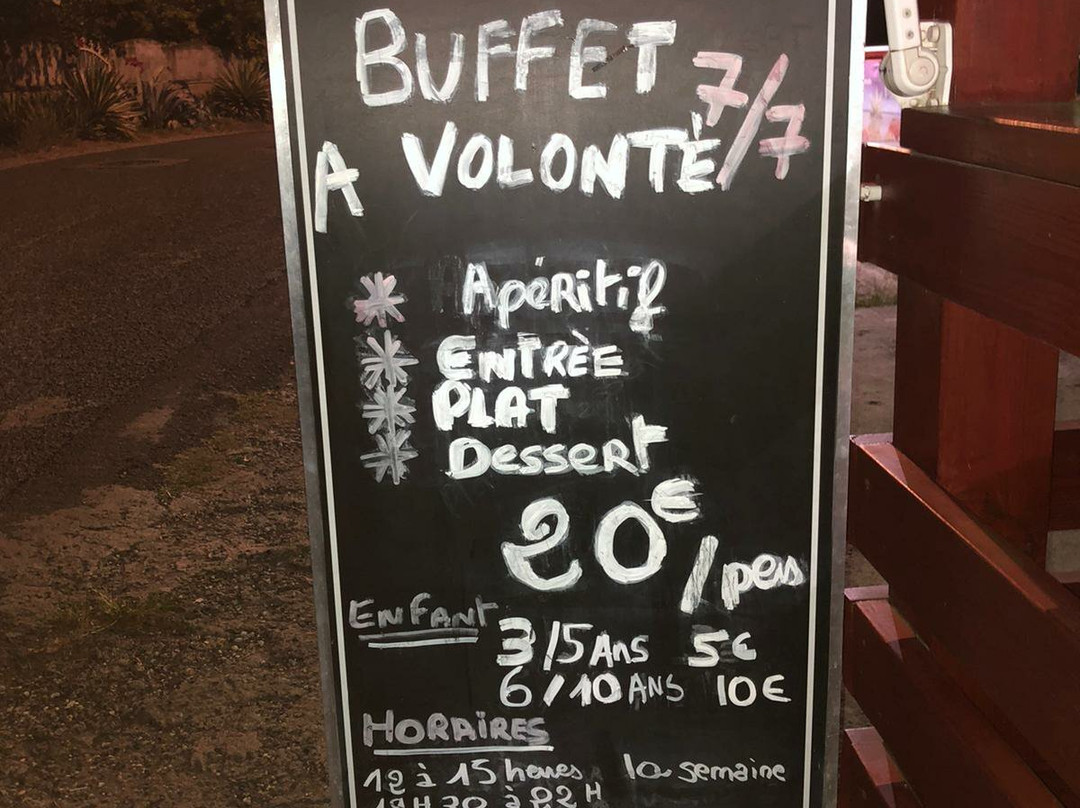 BUFFET 7/7
A VOLONTÉ
* Apéritif
* ENTRÈE
* PLAT
* Dessert
20€/pers
ENFANT
3/5 Ans 5€
6/10 ANS 10€
HORAiRES
12 à 15 heures la semaine
à 22 H